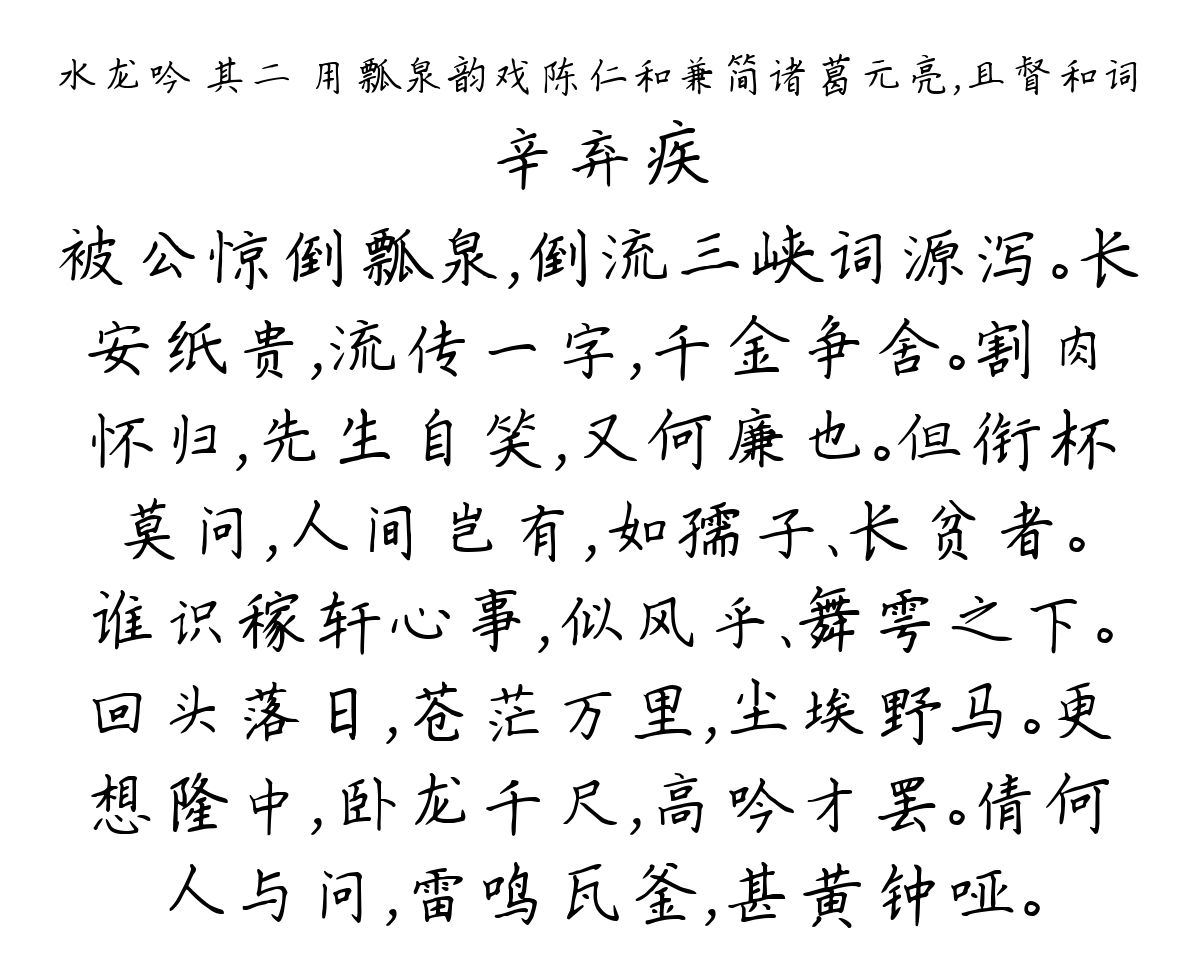 水龙吟 其二 用瓢泉韵戏陈仁和兼简诸葛元亮,且督和词
辛弃疾
被公惊倒瓢泉,倒流三峡词源泻。长
安纸贵,流传一字,千金争舍。割肉
怀归,先生自笑,又何廉也。但衔杯
莫问,人间岂有,如孺子、长贫者。
谁识稼轩心事,似风乎、舞雩之下。
回头落日,苍茫万里,尘埃野马。更
想隆中,卧龙千尺,高吟才罢。倩何
人与问,雷鸣瓦釜,甚黄钟哑。